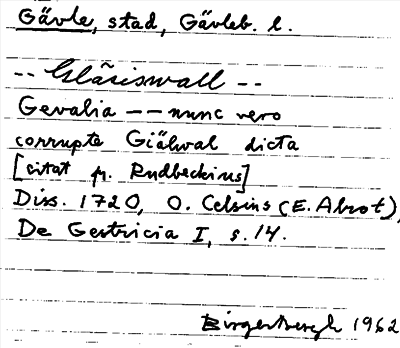 Gävle, stad, Gävleb. l.
-- Gläsiswall --
Gevalia -- nunc vero
corrupte Giälwal dicta
[citat fr. Rudbeckius]
Diss. 1720, O. Celsius (E. Abrot),
De Gestricia I, s. 14.
1962